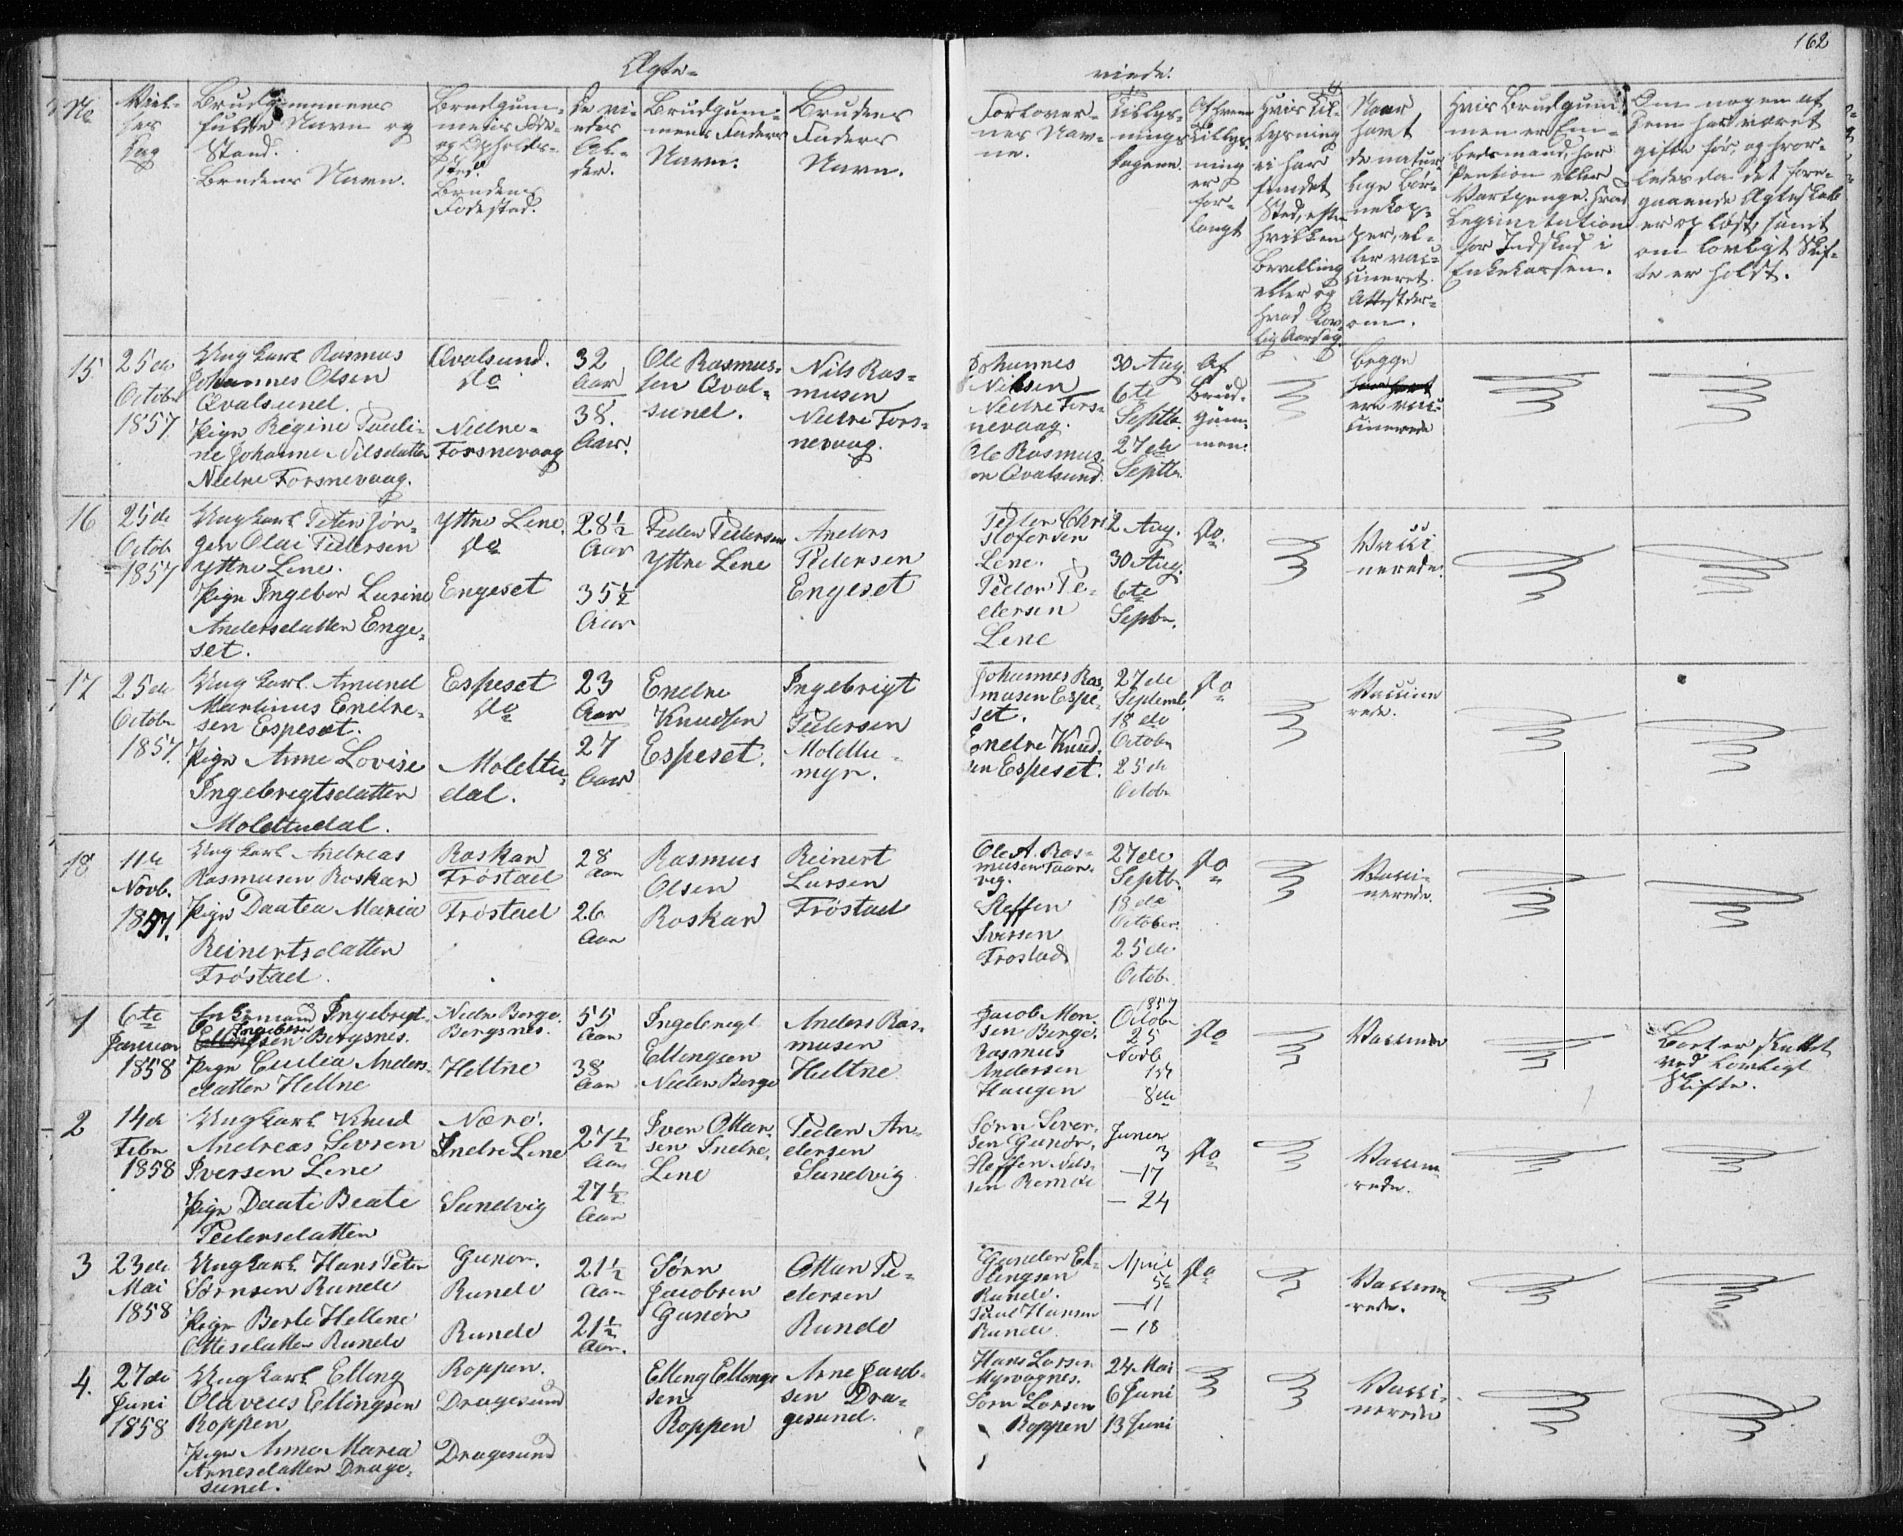 162
Ægte-
viede.
No
Viel-
ses
dag
Brudgommens
fulde Navn og
Stand.
Brudens Navn.
Brudgom-
mens Føde-
og Opholds-
sted.
Brudens
Fødested.
De vi-
edes
Al-
der.
Brudgom-
mens Faders
Navn.
Brudens
Faders
Navn.
Forlover-
nes Nav-
ne.
Tillys-
nings
dagene.
Af hvem
Tillys-
ning
er
for-
langt
Hvis Til-
lysning
ei har
fundet
Sted, efter
hvilken
Bevilling
eller og
hvad Lov-
lig Aarsag.
Naar
havt
de natur-
lige Bør-
nekop-
per, el-
ler vac-
cineret.
Attest der-
om.
Hvis Brudgom-
men er Em-
bedsmand, har
Pention eller
Vartpenge, hvad
Legimitation
for Indskud i
Enkekassen.
Om nogen af
Dem har været
gifte før, og hvor-
ledes da det fore-
gaaende Ægteskab
er opløst, samt
om lovligt Skif-
te er holdt.
15.
25de
Octobr
1857.
Ungkarl Rasmus
Johannes Olsen
Qvalsund.
Pige Regine Pauli-
ne Johanne Nilsdatter
Nedre Forsnevaag.
Qvalsund.
do
Nedre-
Forsnevaag
32
Aar
38.
Aar.
Ole Rasmus-
sen Qval-
sund.
Nils Ras-
musen
Nedre Fors-
nevaag.
Johannes
Nilsen
Nedre Fors-
nevaag.
Ole Rasmus-
sen Qvalsund.
30 Aug.
6te
Septbr.
27de
Septbr.
Af
Brud-
gom-
men.
begge
ere vac-
cinerede
16
25de
Octob
1857
Ungkarl Peter Jør-
gen Olai Pedersen
Yttre Lene.
Pige Ingebor Lusine
Andersdatter Enge-
set.
Yttre Lene.
do
Engeset
28½
Aar
35½
Aar
Peder Pedersen
Yttre Lene
Anders
Pedersen
Engeset
Peder Chri
stofersen
Lene.
Peder Pe-
dersen
Lene
2 Aug.
30 Aug.
6te
Septbr.
do.
Vacci
nerede.
17
25de
Octobr
1857.
Ungkarl Amund
Martinus Endre-
sen Espeset.
Pige Anne Lovise
Ingebregtsdatter
Molttudal.
Espeset
do
Molttu-
dal.
23
Aar
27
Aar
Endre
Knudsen
Espeset.
Ingebrigt
Pedersen
Molttu-
myr.
Johannes Ras-
musen Espe-
set.
Endre Knud-
sen Espeset.
27de
Septemb.
18de
Octobr
25de
Octobr
do
Vaccine
rede.
18
11te
Novb.
1857.
Ungkarl Andreas
Rasmusen Roskar
Pige Daatea Maria
Reinertsdatter
Frøstad.
Roskar
Frøstad
Frøstad
28
Aar
26
Aar
Rasmus
Olsen
Roskar
Reinert
Larsen
Frøstad
Ole A. Ras-
musen Taar-
vig.
Steffen
Iversen
Frostad
27de
Septb.
18de
October.
25de
Octob.
do
Vacci-
nerede.
1
6te
Januar
1858
Enkemand Ingebrigt
Ingebrigtsen Bergsnes.
Pige Cecilia Anders-
datter Heltne
Nedre Berge.
Bergsnes.
Heltne
55
Aar
38
Aar
Ingebrigt
Ellingsen
Nedre Berge
Anders Ras-
musen
Heltne
Jacob Mon-
sen Berge.
Rasmus
Andersen
Haugen
1857
Octobr
25
Novb
1st
8de
do
Vaccine
Bort er Skiftet
ved Lovligt
Skifte.
2
14de
Febr
1858
Ungkarl Knud
Andreas Sivsen
Iversen Lene
Pige Daate Beate
Pedersdatter
Nærø.
Indre Lene
Sandvig
27½
Aar
27½
Aar
Iver Ottar-
sen Indre-
Lene
Peder An-
dersen
Sandvig
Sørn Siver-
sen Gunør.
Steffen Nils-
sen Remøe
Januar
3
—17
— 24
do
Vaccine-
rede.
3
23de
Mai
1858
Ungkarl Hans Peter
Sørnsen Runde
Pige Berte Hellene
Ottesdatter Runde
Gunør.
Runde
Runde
21½
Aar
21½
Aar.
Sørn
Jacobsen
Gunør
Ottar Pe-
dersen
Runde
Gunder El-
lingsen
Runde.
Paul Hansen
Runde.
April
5te
—11
—18
do
Vaccine-
rede.
4.
27de
Juni
1858
Ungkarl Elling
Olaveus Ellingsen
Roppen
Pige Anne Maria
Arnesdatter Drage-
sund.
Roppen.
Dragesund
Dragesund
Elling Ellings
sen
Roppen
Arne Jacob-
sen Dra-
gesund.
Hans Larsen
Myrvagnes.
Sørn Larsen
Roppen
24 Mai
6 Juni
13 Juni
Vacci-
nerede